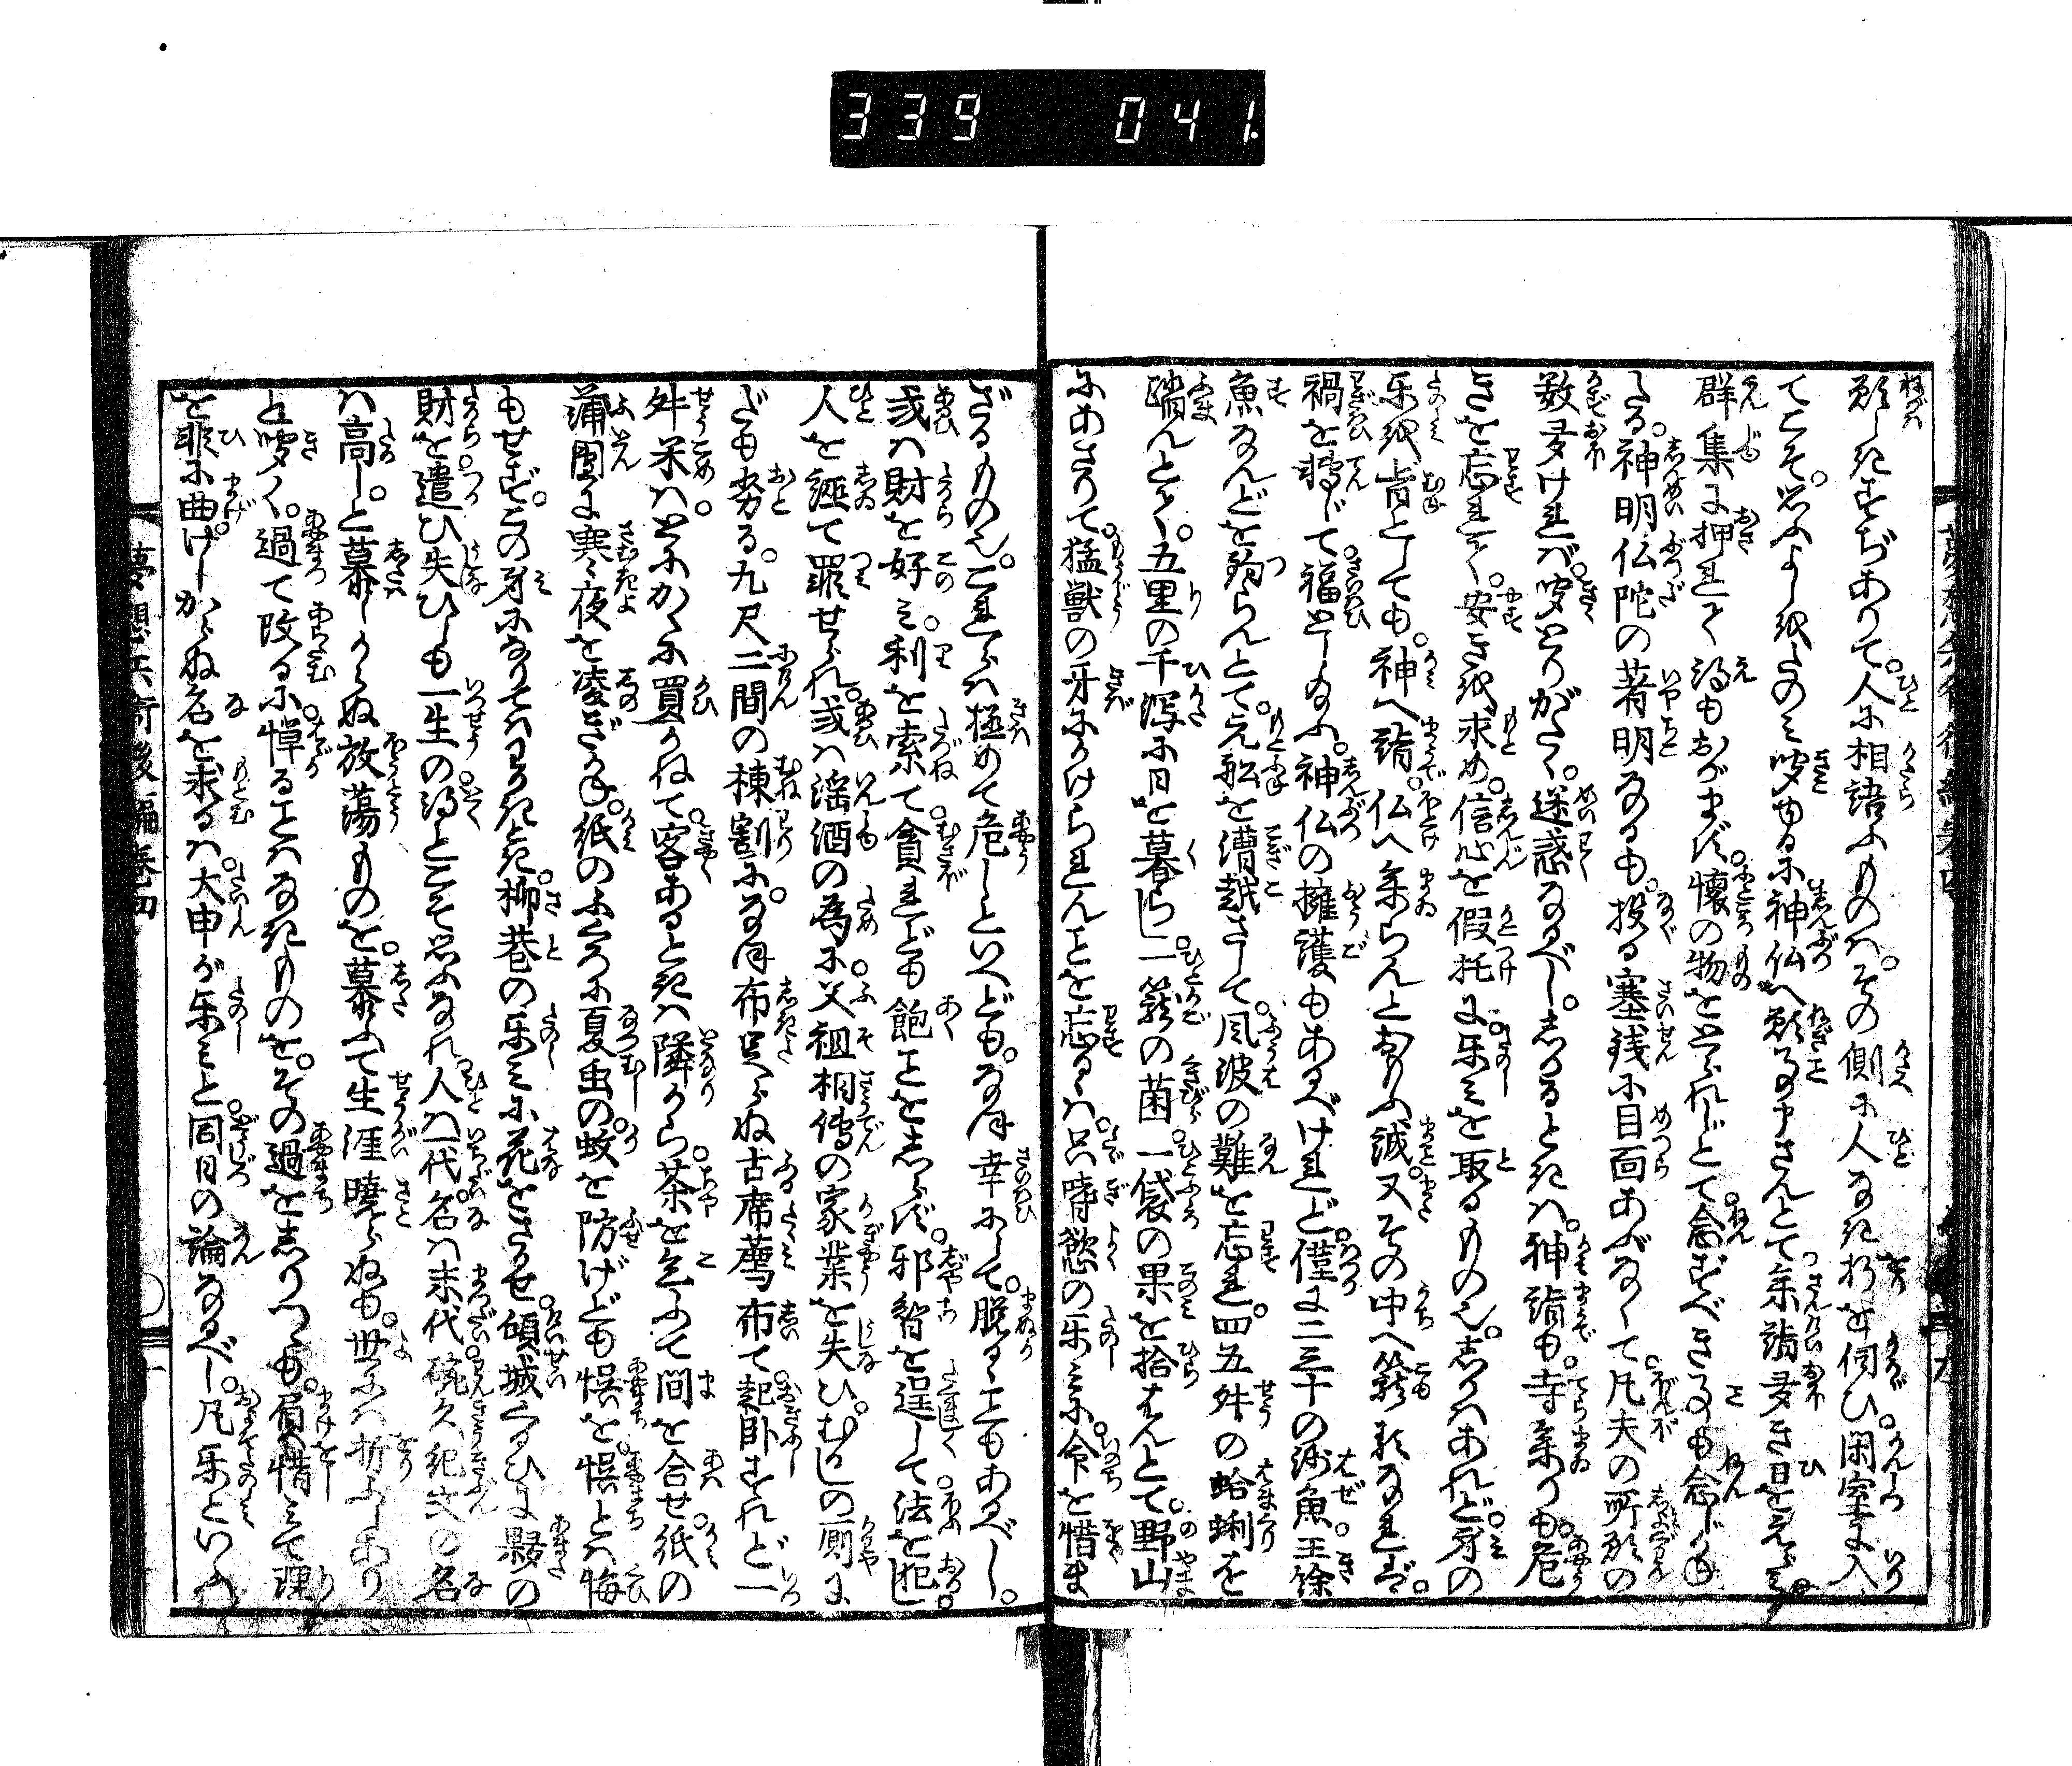 339 041.
願しきすぢありて。人に相語ふものハ。その側に人なき折を伺ひ。閑室に入
てこそ。思ふよしをたのミ聞ゆるに神仏へ願事申さんとて参詣多き日をえらミ
群集に押れて得もおがまず。懐の物をとられじとて。念ずべき事も念じかね
たる。神明仏陀の著明なるも。投る塞銭に目面あぶなくて。凡夫の所願の
数多けれバ。聞とりがたく。迷惑なるべし。しかるときハ。神詣も。寺参りも。危
きを忘れて。安きを求め。信心を假托に。楽ミを取るもの也。しかハあれど。身の
楽を旨としても。神へ詣。仏へ参らんとおもふ誠。又その中へ籠るなれバ。
禍を轉じて。福としゐふ。神仏の擁護もあるべけれど。僅に二三十の沙魚。王餘
魚なんどを釣らんとて。元舩を漕越さして。風波の難を忘れ。四五舛の蛤蜊を
蹈んとて。五里の干瀉に日を暮らし。一籠の菌。一袋の果を拾はんとて。野山
にあさりて。猛獣の牙にかけられんことを忘るゝハ。只嗜慾の楽ミに。命を惜ま
ざるもの也。これらハ極めて危しといへども。なほ幸にして。脱るゝこともあるべし。
或ハ財を好ミ。利を索て。貪れども飽ことをしらず。邪智を逞して。法を犯し
人を誣て罪せられ。或ハ淫酒の為に。父祖相傳の家業を失ひ。むかしの厠に
だも劣る。九尺二間の棟割に。なほ布足らぬ古席薦布て。起臥すれど一
舛米ハ。とにかくに買かねて。客あるときハ隣から。茶を乞ふて間を合せ。紙の
蒲團に寒き夜を凌ぎかね。紙のふくろに夏虫の。蚊を防げども悞を。悞とハ悔
もせず。この身になりてハわかきとき。柳巷の楽ミに花をさかせ。傾城ぐるひに夥の
財を遣ひ失ひしも一生の得とこそ思ふなれ。人ハ一代名ハ末代。碗久紀文の名
ハ高し。と慕しからぬ放蕩ものを。慕ふて生涯暁らぬも。世にハ折ふしあり
と聞く。過て改るに。憚ることハなきものを。その過をしりつゝも。肩惜ミて理
を非に曲げ。しからぬ名を求るハ。大申が楽ミと同日の論なるべし。凡楽といふハ
夢想兵衛後編巻四